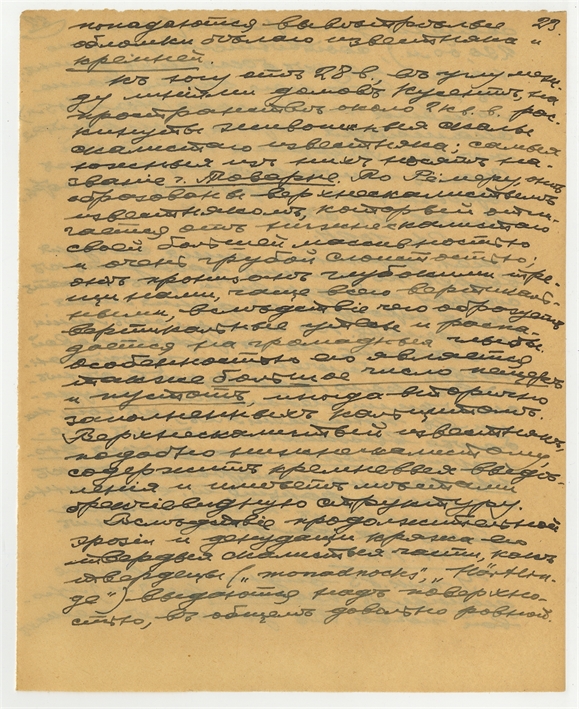 попадаются, вывѣтрѣлые 29.
обломки бѣлаго известняка и
кремней.
Къ югу отъ 28 в., въ углу меж-
ду линіями домовъ Кусентъ, на
пространствѣ около 2 кв. в. рас-
кинуты живописныя скалы
скалистаго известняка; самыя
южныя изъ нихъ носятъ на-
званіе г. Товарне. По Рёмеру, онѣ
образованы верхнескалистымъ
известнякомъ, который отли-
чается отъ нижнескалистаго
своей большей массивностью
и очень грубой слоистостью;
онъ пронизанъ глубокими тре-
щинами, чаще всего вертикаль-
ными, вслѣдствіе чего образуетъ
вертикальные утесы и распа-
дается на громадныя глыбы.
Особенностью его является
также большое число пещеръ
и пустотъ, иногда вторично
заполненныхъ кальцитомъ.
Верхнескалистый известнякъ,
подобно нижнескалистому,
содержитъ кремневыя выдѣ-
ленія и имѣетъ мѣстами
брекчіевидную структуру.
Вслѣдствіе продолжительной
эрозіи и денудаціи кряжа его
твердыя скалистыя части, какъ
твердецы („monadnocks", „Härtlin-
ge") выдаются надъ поверхно-
стью, въ общемъ довольно ровной.